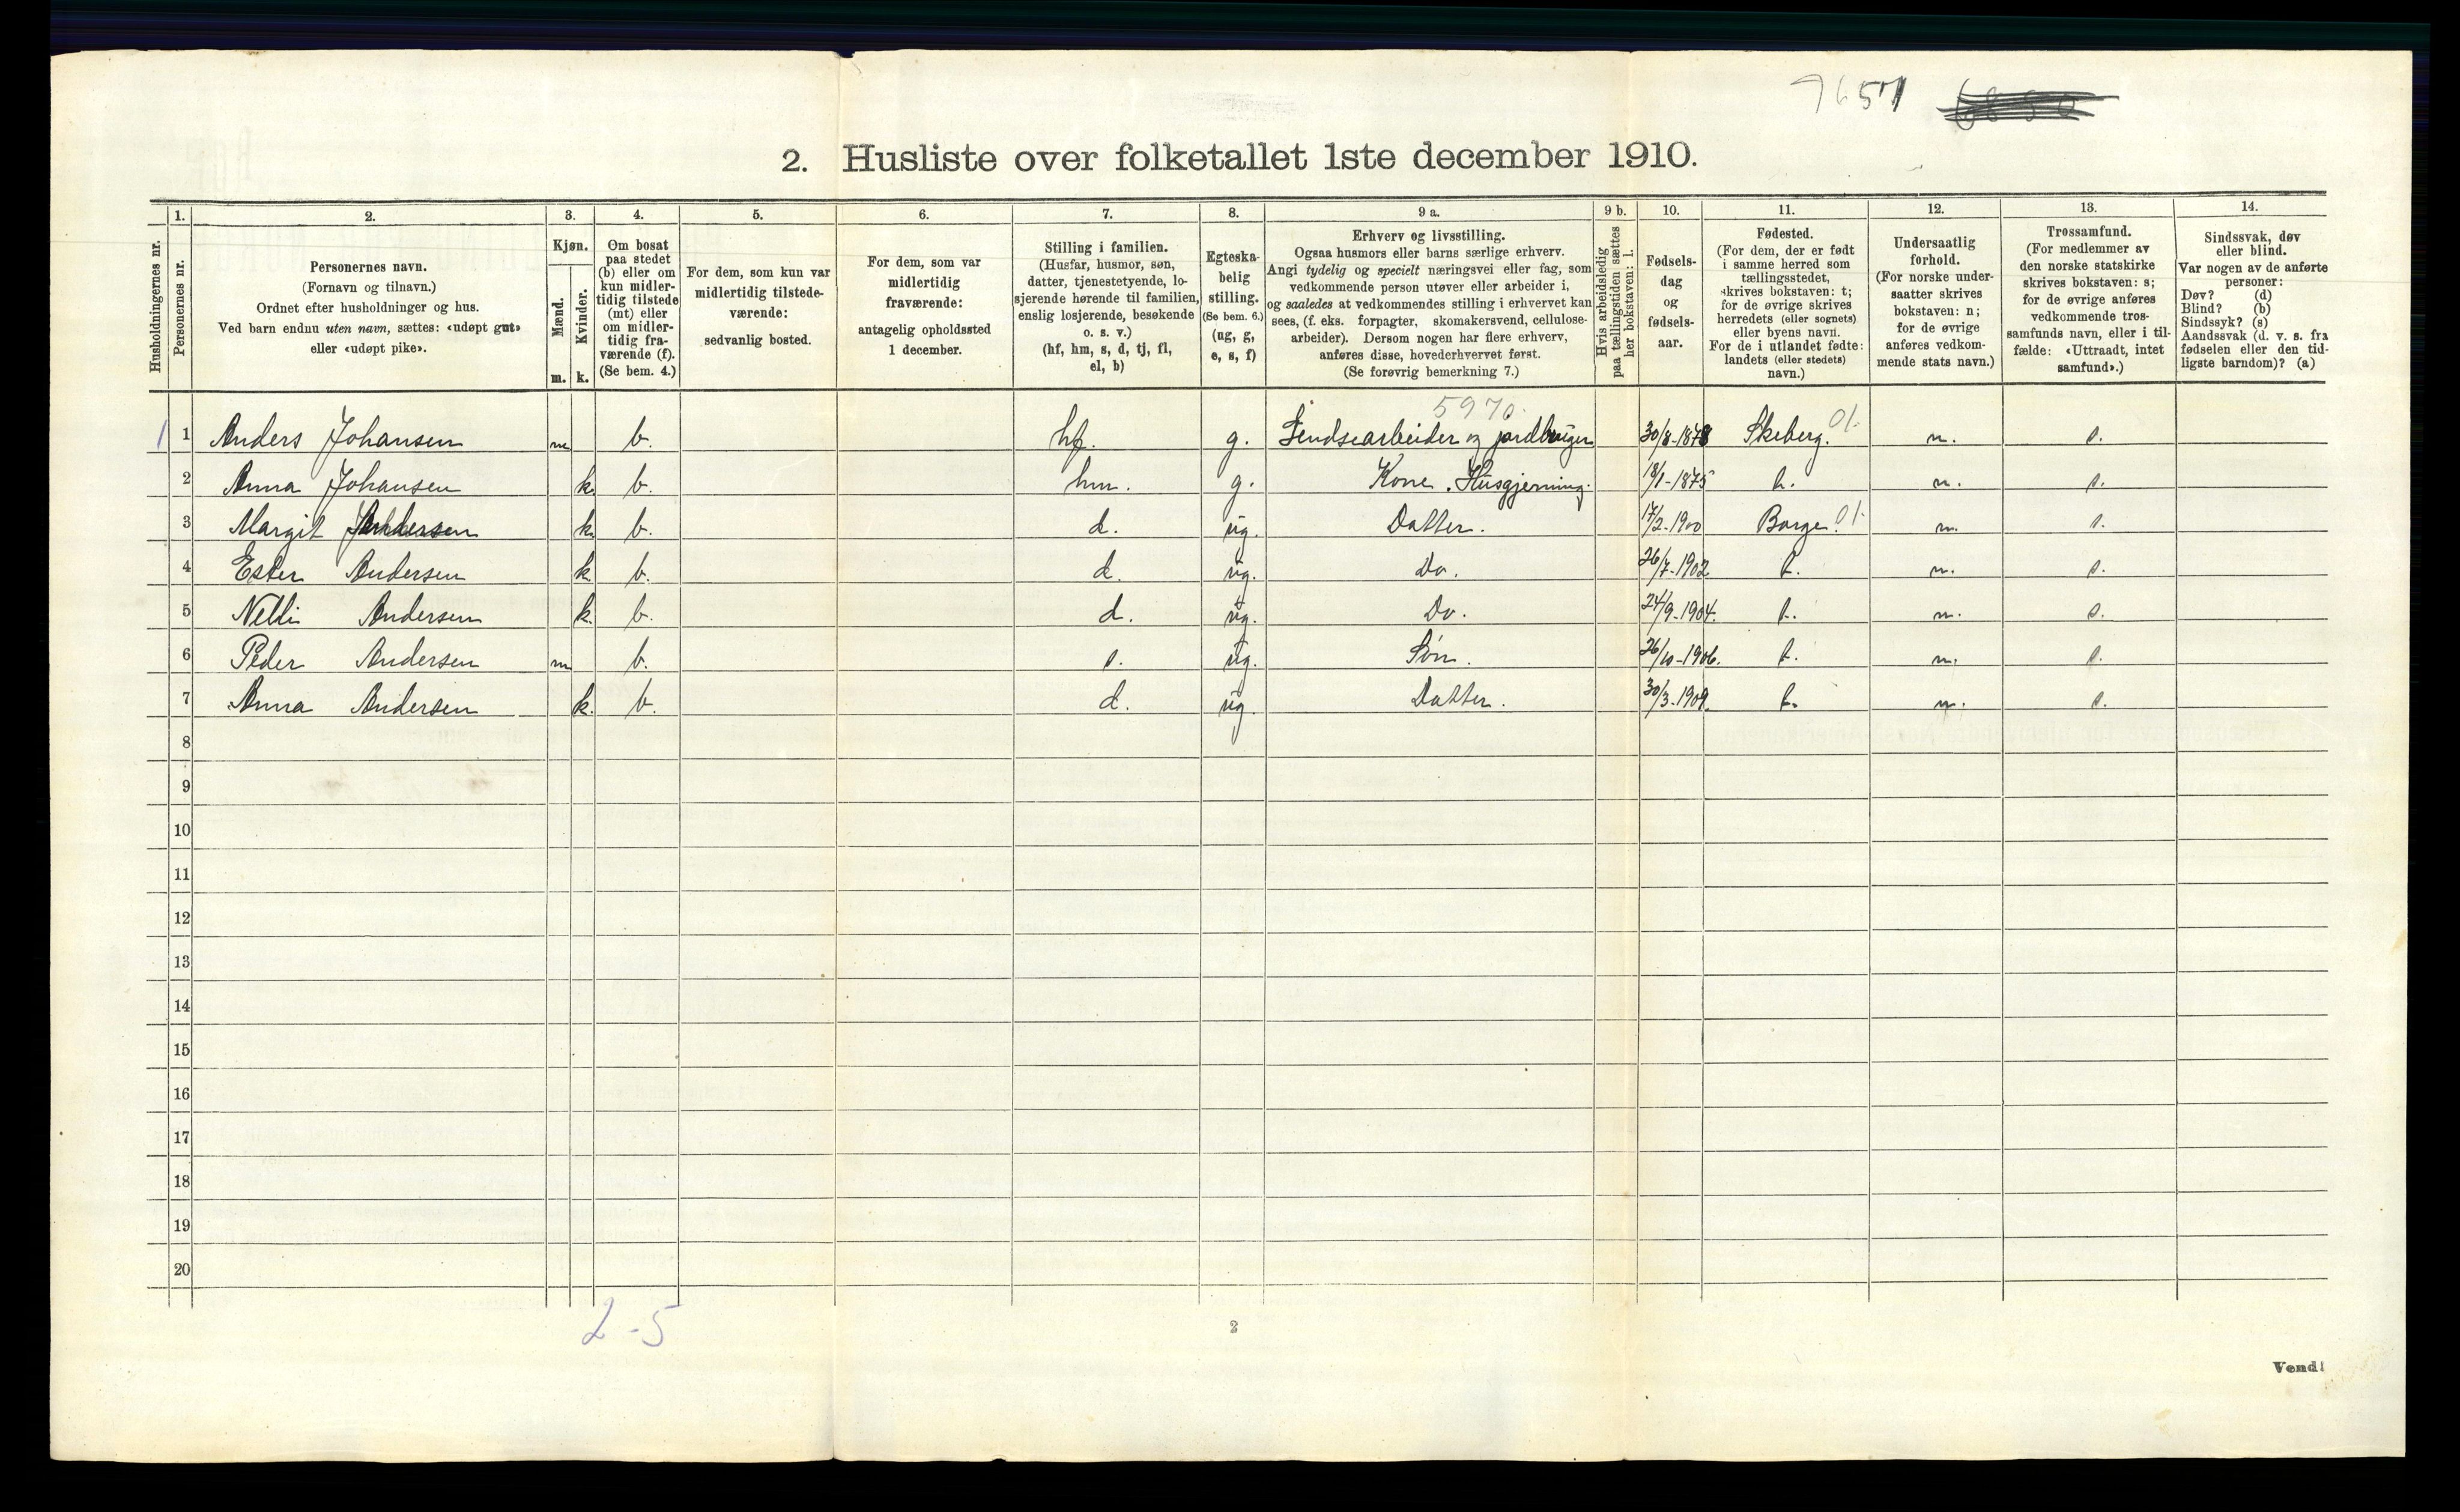 7651
2. Husliste over folketallet 1ste december 1910.
Husholdningernes nr.
1.
Personernes nr.
2.
Personernes navn.
(Fornavn og tilnavn.)
Ordnet efter husholdninger og hus.
Ved barn endnu uten navn, sættes: «udøpt gut»
eller «udøpt pike».
3.
Kjøn.
Mænd.
Kvinder.
m. k.
4.
Om bosat
paa stedet
(b) eller om
kun midler-
tidig tilstede
(mt) eller
om midler-
tidig fra-
værende (f).
(Se bem. 4.)
5.
For dem, som kun var
midlertidig tilstede-
værende:
sedvanlig bosted.
6.
For dem, som var
midlertidig
fraværende:
antagelig opholdssted
1 december.
7.
Stilling i familien.
(Husfar, husmor, søn,
datter, tjenestetyende, lo-
sjerende hørende til familien,
enslig losjerende, besøkende
o. s. v.)
(hf, hm, s, d, tj, fl,
el, b)
8.
Egteska-
belig
stilling.
(Se bem. 6.)
(ug, g,
e, s, f)
9 a.
Erhverv og livsstilling.
Ogsaa husmors eller barns særlige erhverv.
Angi tydelig og specielt næringsvei eller fag, som
vedkommende person utøver eller arbeider i,
og saaledes at vedkommendes stilling i erhvervet kan
sees, (f. eks. forpagter, skomakersvend, cellulose-
arbeider). Dersom nogen har flere erhverv,
anføres disse, hovederhvervet først.
(Se forøvrig bemerkning 7.)
9 b.
Hvis arbeidsledig
paa tællingstiden sættes
her bokstaven: l.
10.
Fødsels-
dag
og
fødsels-
aar.
11.
Fødested.
(For dem, der er født
i samme herred som
tællingsstedet,
skrives bokstaven: t;
for de øvrige skrives
herredets (eller sognets)
eller byens navn.
For de i utlandet fødte:
landets (eller stedets)
navn.)
12.
Undersaatlig
forhold.
(For norske under-
saatter skrives
bokstaven: n;
for de øvrige
anføres vedkom-
mende stats navn.)
13.
Trossamfund.
(For medlemmer av
den norske statskirke
skrives bokstaven: s;
for de øvrige anføres
vedkommende tros-
samfunds navn, eller i til-
fælde: «Uttraadt, intet
samfund».)
14.
Sindssvak, døv
eller blind.
Var nogen av de anførte
personer:
Døv? (d)
Blind? (b)
Sindssyk? (s)
Aandssvak (d. v. s. fra
fødselen eller den tid-
ligste barndom)? (a)
5970.
1 1 Anders Johansen m b. hf. g. jordbruger 30/8-1878 Skeberg. 01. n. s.
2 Anna Johansen k. b. hm. g. Kone. Husgjerning. 18/1-1875 t. n. s.
3 Margit Andersen k. b. d. ug. Datter. 17/2-1900 Borge. 01. n. s.
4 Ester Andersen k. b. d. ug. Do. 26/7-1902 t. n. s.
5 Nelli Andersen k. b. d. ug. Do. 24/9-1904. t. n. s.
6 Peder Andersen m b. s. ug. Søn. 26/10-1906. t. n. s.
7 Anna Andersen k. b. d. ug. Datter. 30/3-1909. t. n. s.
8
9
10
11
12
13
14
15
16
17
18
19
20
2-5
2
Vend!